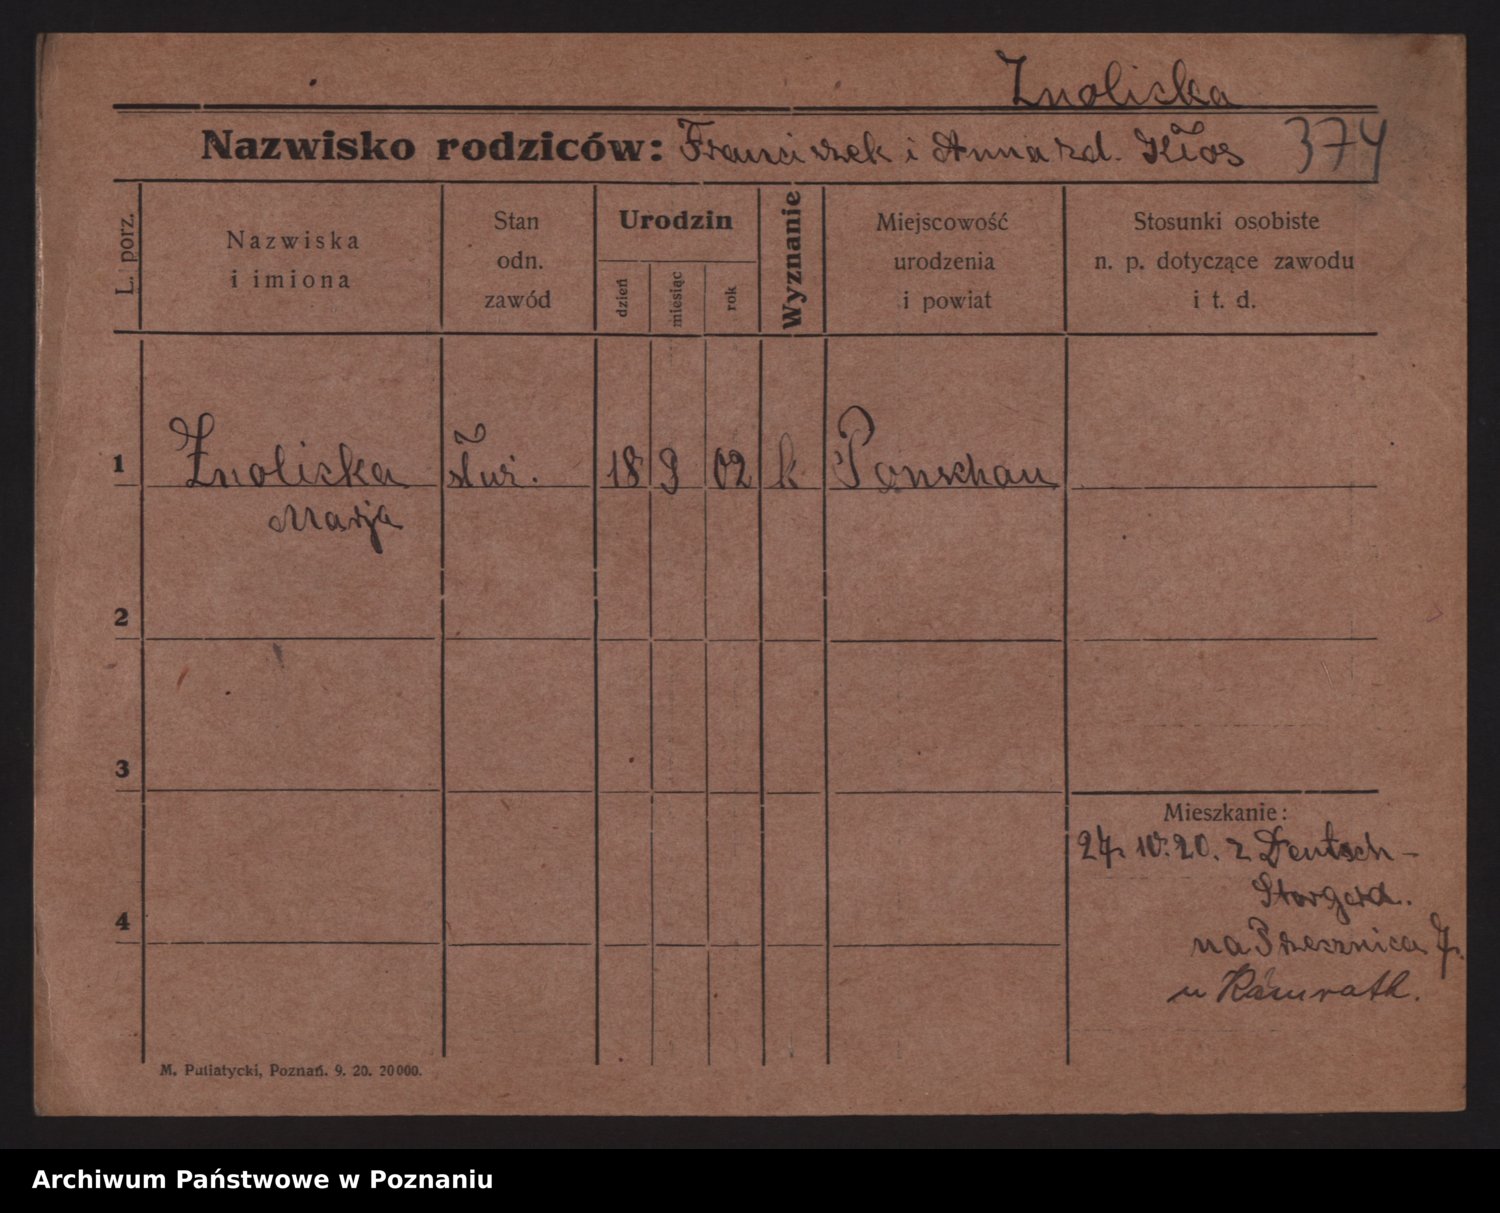 Znoliska
Nazwisko rodziców: Franciszek i Anna zd. Kłos 374
L. porz.
Nazwiska
i imiona
Stan
odn.
zawód
Urodzin
dzień
miesiąc
rok
Wyznanie
Miejscowość
urodzenia
i powiat
Stosunki osobiste
n. p. dotyczące zawodu
i t. d.
1 Znoliska służ. 18 9 02 k Ponschau
Marja
2
3
4
Mieszkanie:
27. 10. 20. z Deutsch-
Stargard.
na Przecznica 7.
u Kamrath.
M. Putiatycki, Poznań. 9. 20. 20000.
Archiwum Państwowe w Poznaniu